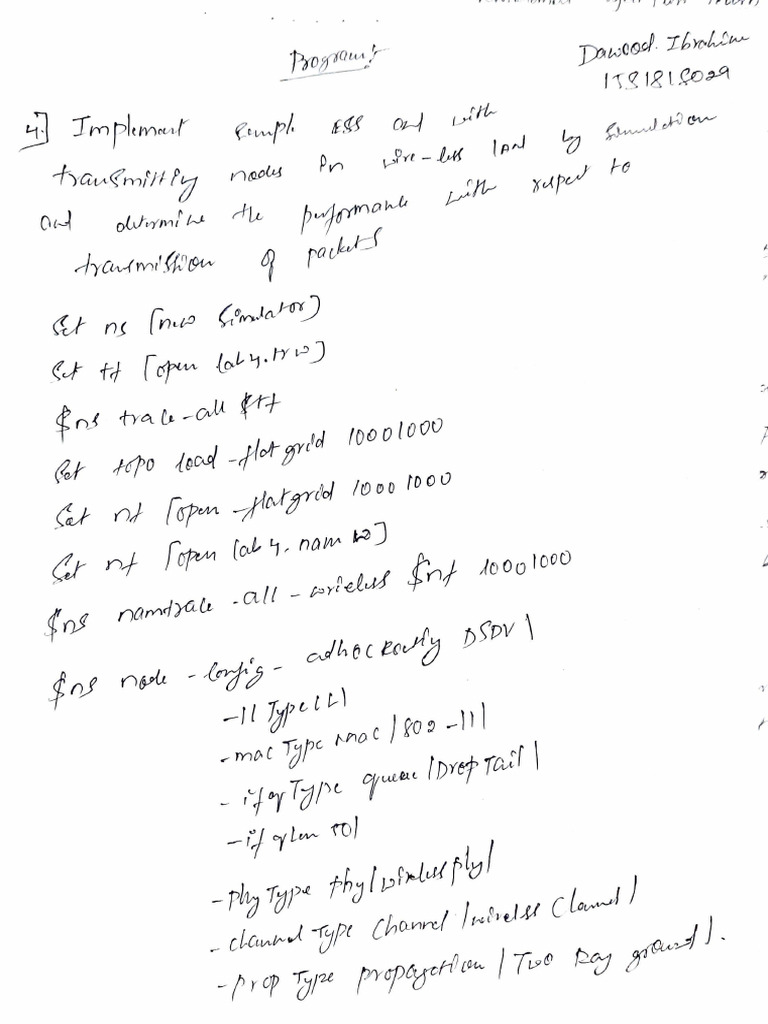 Program:
Dawood. Ibrahim
1JS18IS029
4.] Implement simple ESS and with
transmitting nodes in wire-less LAN by simulation
and determine the performance with respect to
transmission of packets
Set ns [new Simulator]
Set tf [open lab4.tr w]
$ns trace-all $tf
Set topo load-flatgrid 1000 1000
Set nf [open -flatgrid 1000 1000
Set nf [open lab4.nam w]
$ns namtrace-all-wireless $nf 1000 1000
$ns node-config- adhocRouting DSDV \
-llType LL \
-macType Mac/802-11 \
-ifqType queue/DropTail \
-ifqLen 50 \
-phyType Phy/wirelessPhy \
-channelType Channel/wireless Channel \
-propType propagation/Two Ray ground \.